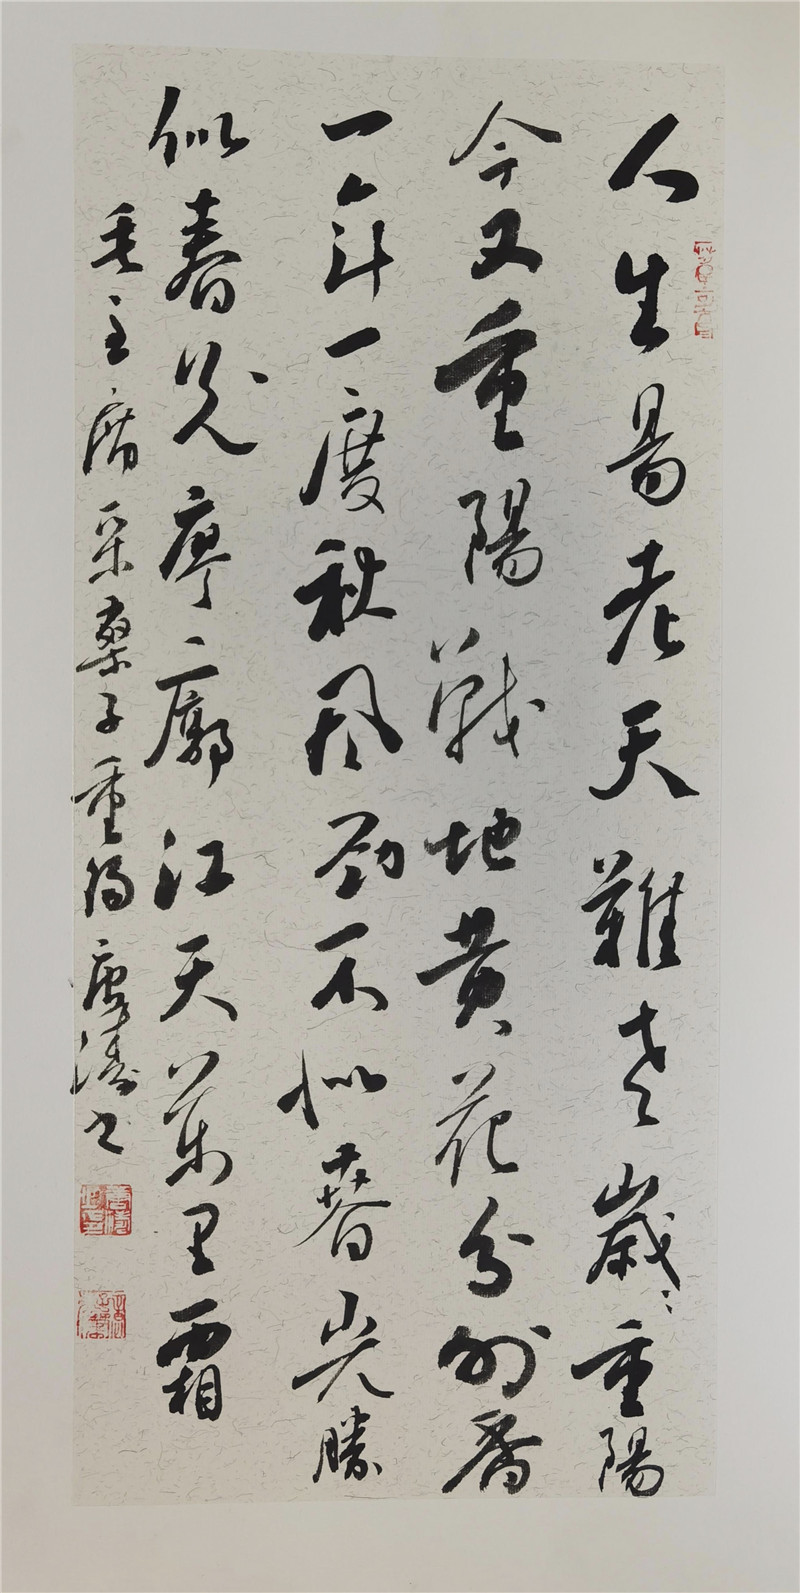 人生易老天難老歲々重陽
今又重陽戰地黄花分外香
一年一度秋風勁不似春光勝
似春光廖廓江天萬里霜
毛主席采桑子重陽唐濤书